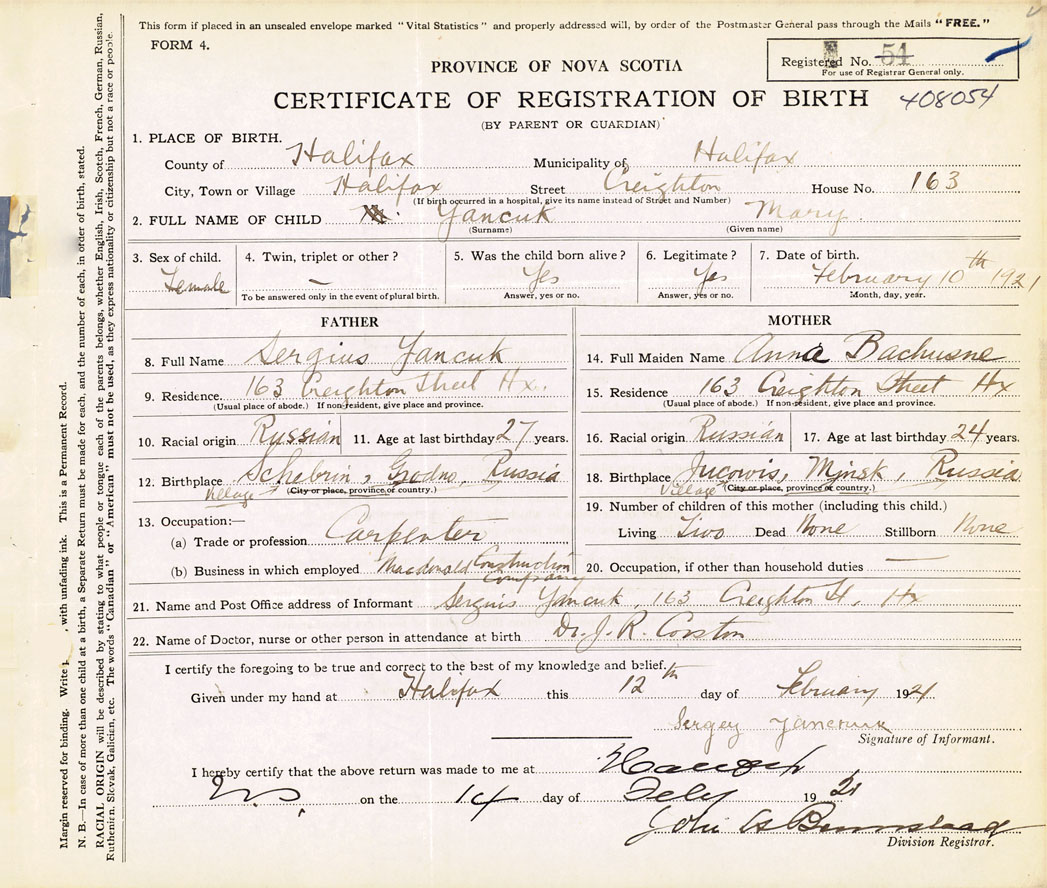 This form if placed in an unsealed envelope marked "Vital Statistics" and properly addressed will, by order of the Postmaster General pass through the Mails "FREE."
FORM 4.
Registered No. 54
For use of Registrar General only.
PROVINCE OF NOVA SCOTIA
CERTIFICATE OF REGISTRATION OF BIRTH 408054
(BY PARENT OR GUARDIAN)
1. PLACE OF BIRTH.
County of Halifax Municipality of Halifax
City, Town or Village Halifax Street Creighton House No. 163
(If birth occurred in a hospital, give its name instead of Street and Number)
2. FULL NAME OF CHILD Yancuk Mary
(Surname) (Given name)
3. Sex of child. 4. Twin, triplet or other? 5. Was the child born alive? 6. Legitimate? 7. Date of birth.
Female — Yes Yes February 10th 1921
To be answered only in the event of plural birth. Answer, yes or no. Answer, yes or no. Month, day, year.
FATHER
8. Full Name Sergius Yancuk
9. Residence. 163 Creighton Street Hx.
(Usual place of abode.) If non-resident, give place and province.
10. Racial origin Russian 11. Age at last birthday 27 years.
12. Birthplace Schebrin, Grodno, Russia
Village (City or place, province or country.)
13. Occupation:—
(a) Trade or profession Carpenter
(b) Business in which employed Macdonald Construction
Company
MOTHER
14. Full Maiden Name Anna Bachusne
15. Residence 163 Creighton Street Hx
(Usual place of abode.) If non-resident, give place and province.
16. Racial origin Russian 17. Age at last birthday 24 years.
18. Birthplace Jucowis, Minsk, Russia
Village (City or place, province or country.)
19. Number of children of this mother (including this child.)
Living Two Dead None Stillborn None
20. Occupation, if other than household duties —
21. Name and Post Office address of Informant Sergius Yancuk, 163 Creighton St, Hx
22. Name of Doctor, nurse or other person in attendance at birth Dr. J. R. Corston
I certify the foregoing to be true and correct to the best of my knowledge and belief.
Given under my hand at Halifax this 12th day of February 1921
Sergey
Signature of Informant.
I hereby certify that the above return was made to me at Halifax
N.S. on the 14 day of Feby 1921
John A
Division Registrar.
Margin reserved for binding. Write , with unfading ink. This is a Permanent Record.
N. B.—In case of more than one child at a birth, a Separate Return must be made for each, and the number of each, in order of birth, stated.
RACIAL ORIGIN will be described by stating to what people or tongue each of the parents belongs, whether English, Irish, Scotch, French, German, Russian,
Ruthenian, Slovak, Galician, etc. The words "Canadian" or "American" must not be used, as they express nationality or citizenship but not a race or people.